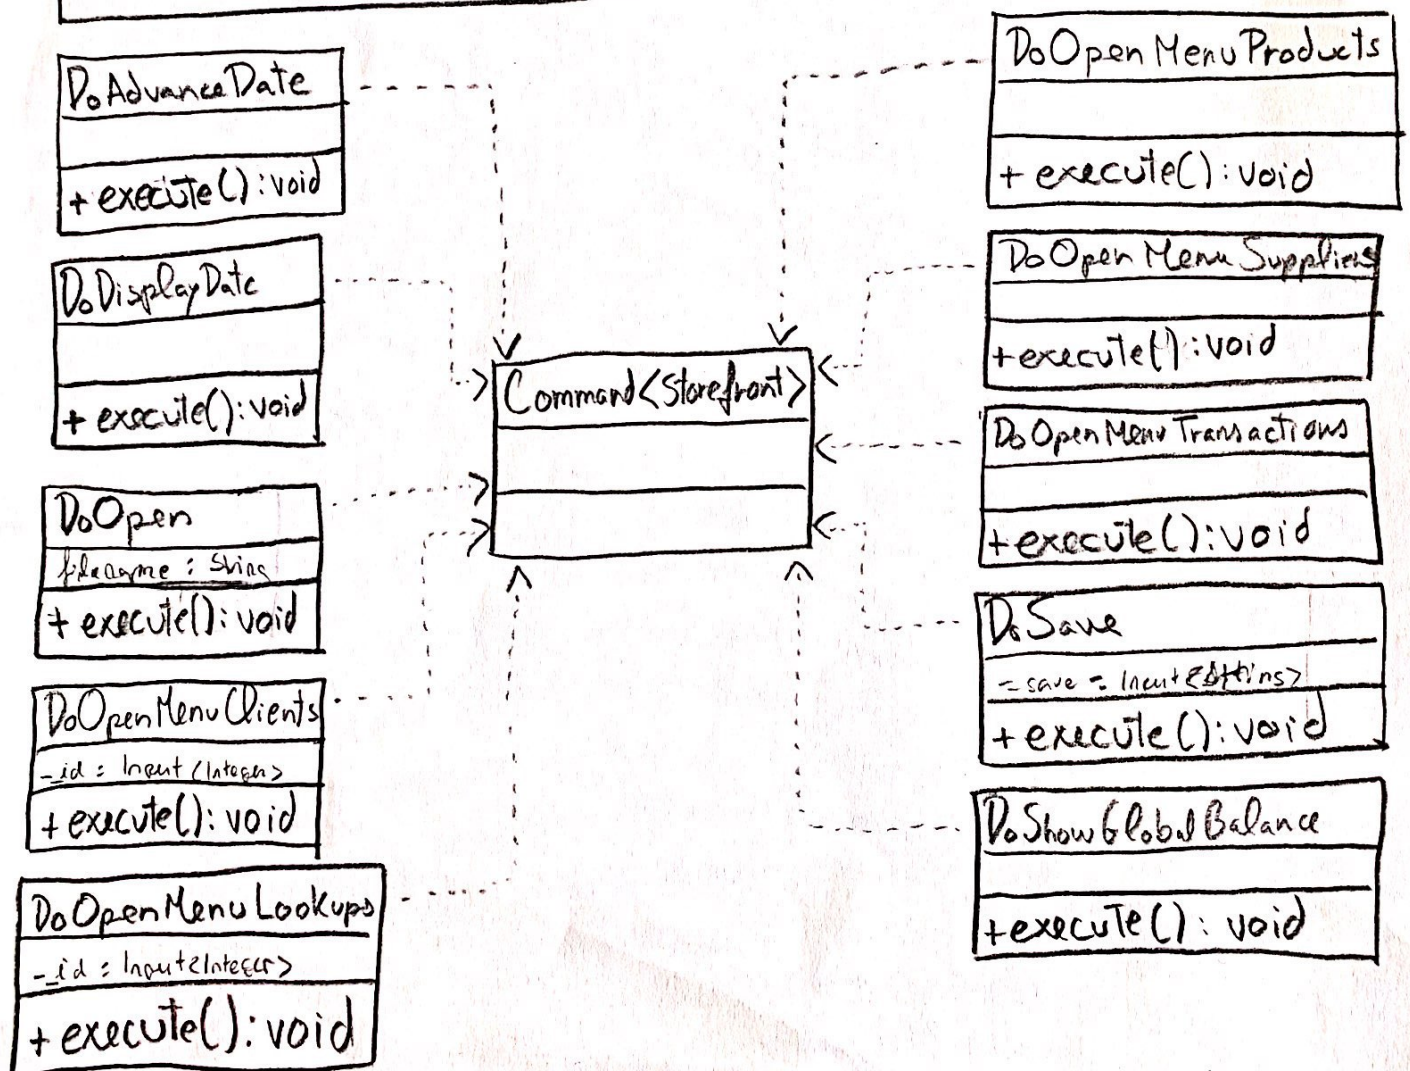 DoAdvanceDate
+ execute() : void
DoDisplayDate
+ execute() : void
DoOpen
filename : String
+ execute() : void
DoOpenMenuClients
-_id : Input<Integer>
+ execute() : void
DoOpenMenuLookups
-_id : Input<Integer>
+ execute() : void
Command<Storefront>
DoOpenMenuProducts
+ execute() : void
DoOpenMenuSuppliers
+ execute() : void
DoOpenMenuTransactions
+ execute() : void
DoSave
+ execute() : void
DoShowGlobalBalance
+ execute() : void